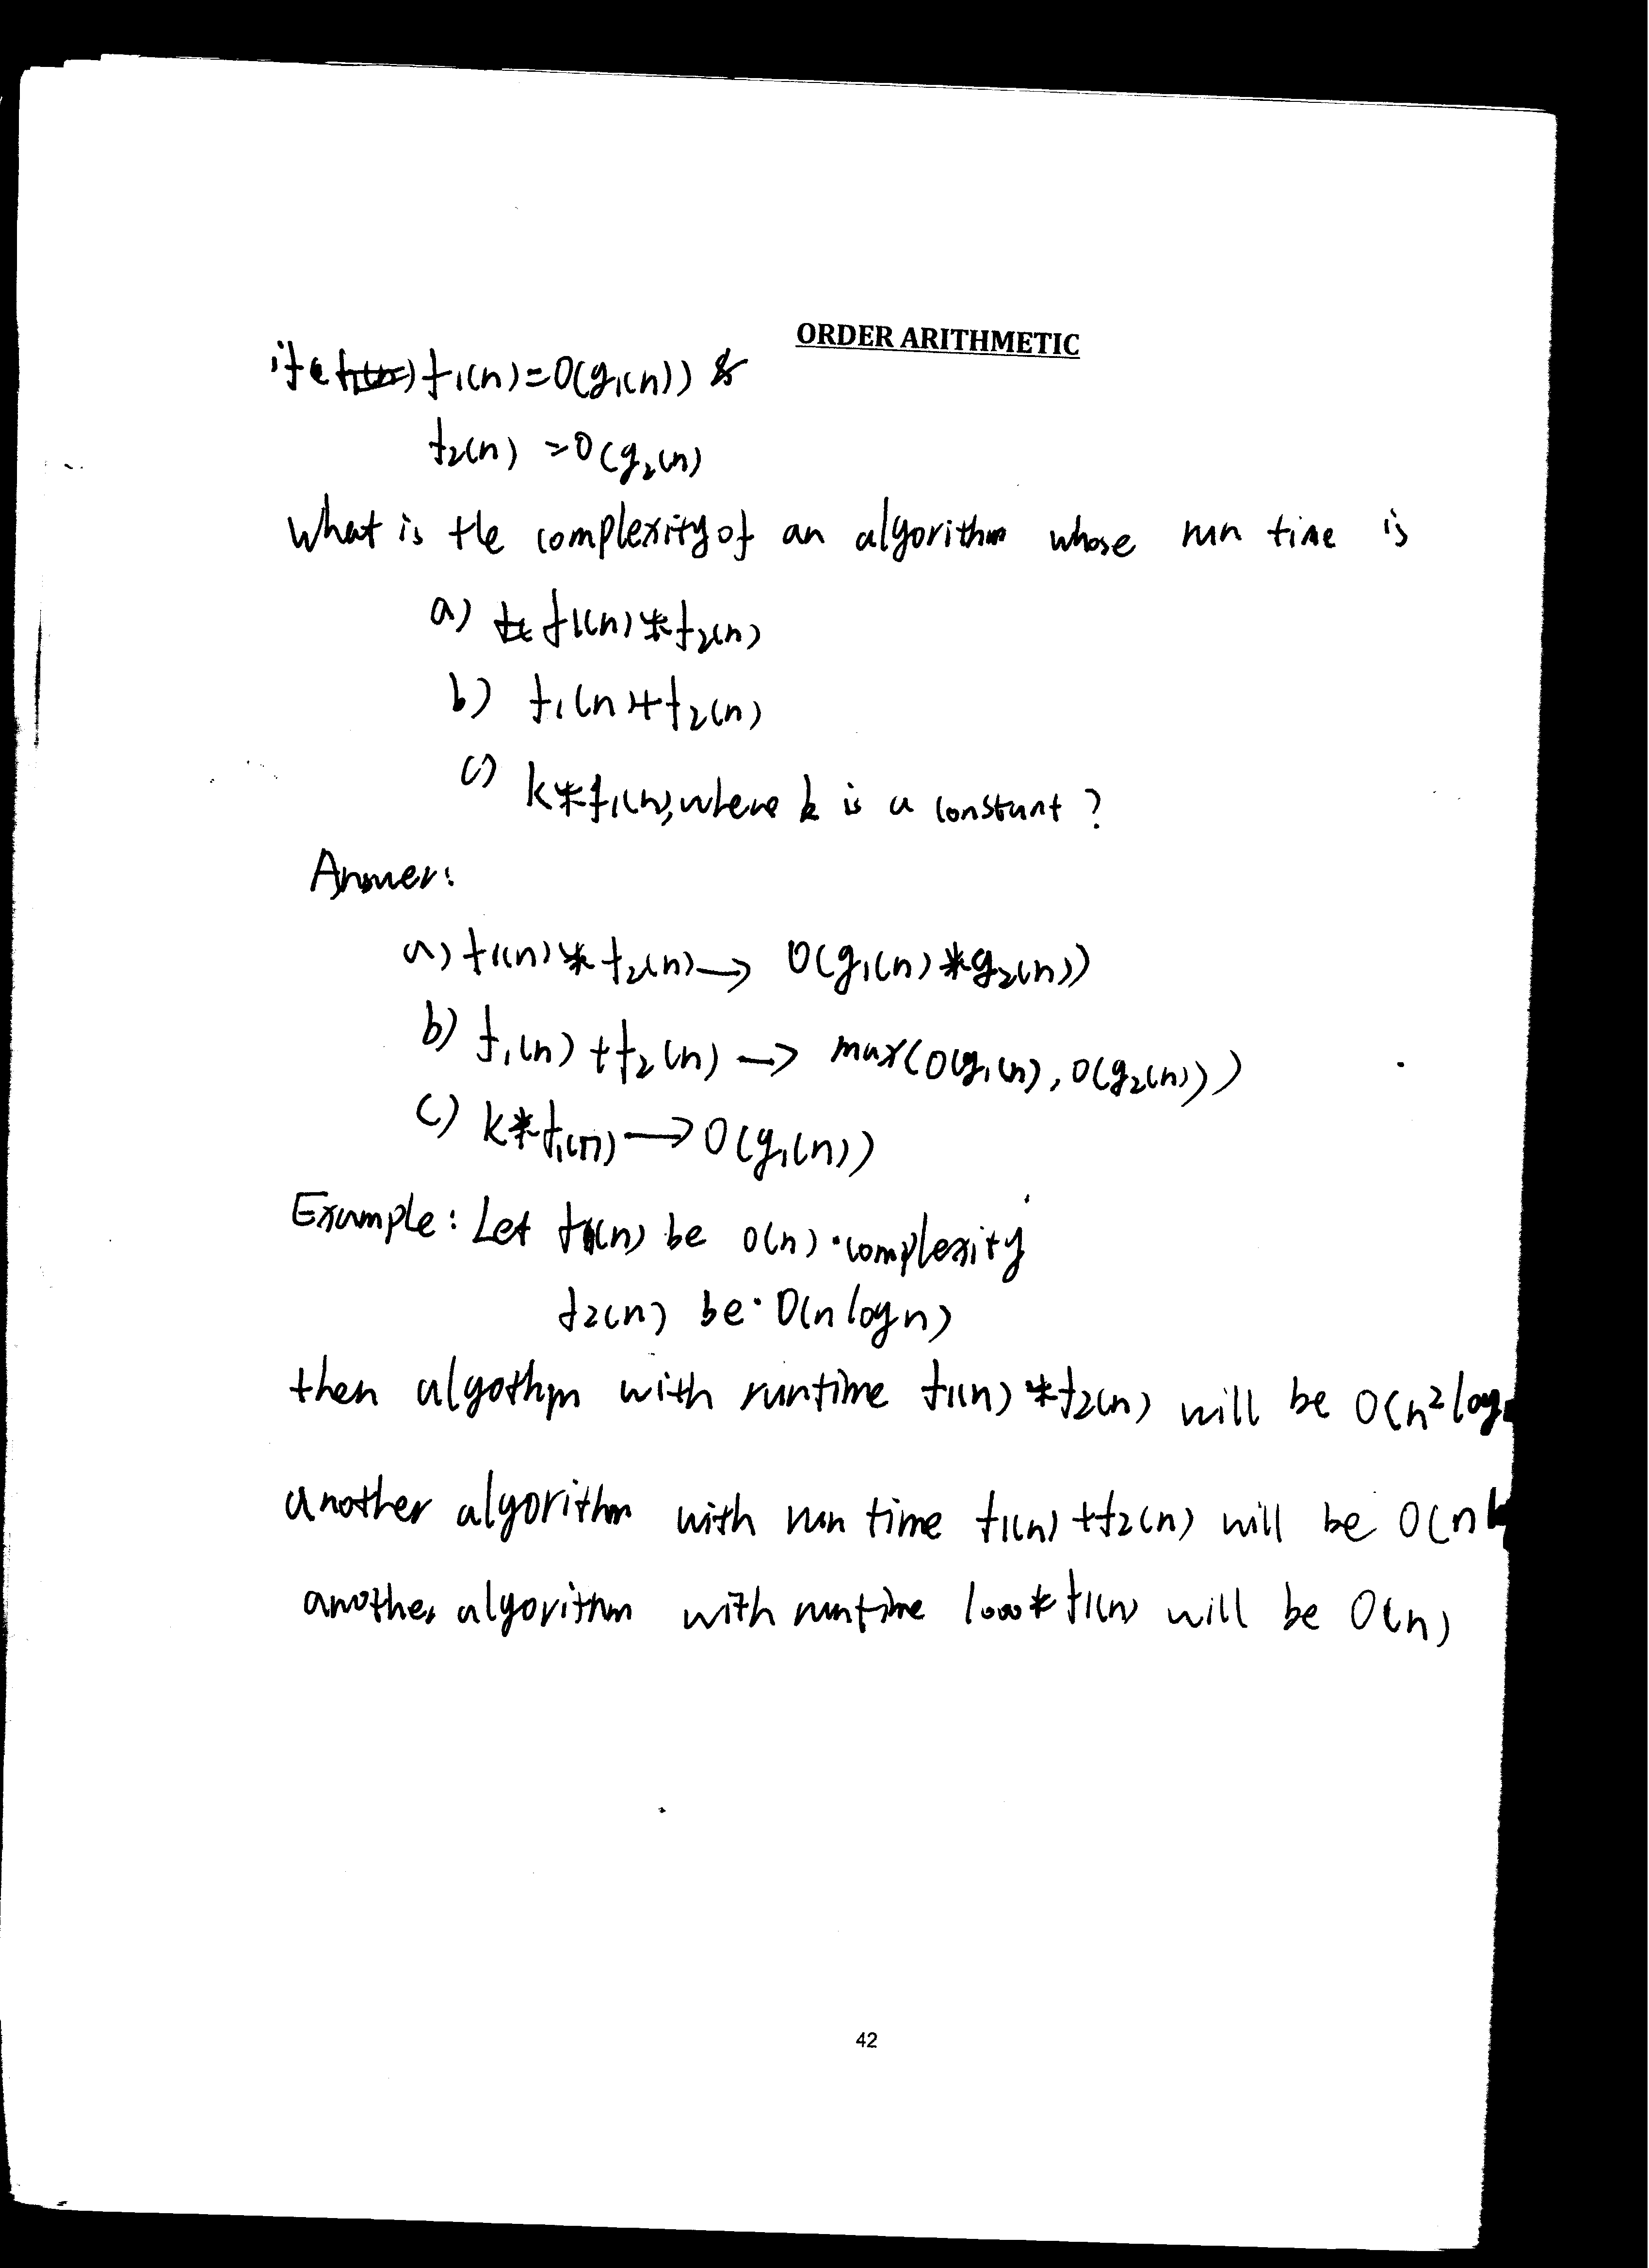 ORDER ARITHMETIC
if f1(n)=O(g1(n)) &
f2(n) =O(g2(n)
What is the complexity of an algorithm whose run time is
a) f1(n)*f2(n)
b) f1(n)+f2(n)
c) k*f1(n), where k is a constant?
Answer:
a) f1(n)*f2(n) → O(g1(n)*g2(n))
b) f1(n)+f2(n) → max(O(g1(n), O(g2(n)))
c) k*f1(n) → O(g1(n))
Example: Let f1(n) be O(n) complexity
f2(n) be O(n log n)
then algothm with runtime f1(n)*f2(n) will be O(n² log
another algorithm with run time f1(n)+f2(n) will be O(n
another algorithm with runtime 1000*f1(n) will be O(n)
42